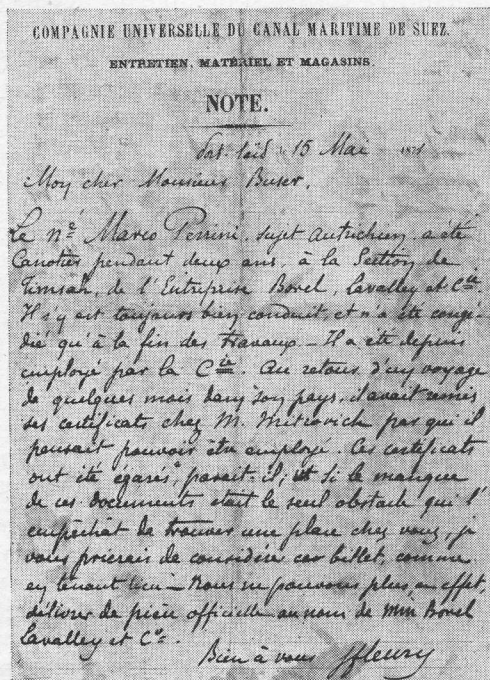 COMPAGNIE UNIVERSELLE DU CANAL MARITIME DE SUEZ.
ENTRETIEN, MATÉRIEL ET MAGASINS.
NOTE.
Port-Saïd 15 Mai 1871
Mon cher Monsieur Buser,
Le né Marco Perrini, sujet autrichien, a été
Canotier pendant deux ans, à la Section de
Timsah, de l'Entreprise Borel, Lavalley et Cie
Il s'y est toujours bien conduit et n'a été congé-
dié qu'à la fin des travaux — Il a été depuis
employé par la Cie. Au retour d'un voyage
de quelques mois dans son pays, il avait remis
ses certificats chez M. Mitrovich par qui il
pensait pouvoir être employé. Ces certificats
ont été égarés, parait-il, et si le manque
de ces documents était le seul obstacle qui l'
empêchât de trouver une place chez vous, je
vous prierais de considérer ce billet, comme
en tenant lieu — Nous ne pouvons plus, en effet,
délivrer de pièce officielle au nom de MM Borel
Lavalley et Cie.
Bien à vous Jfleury